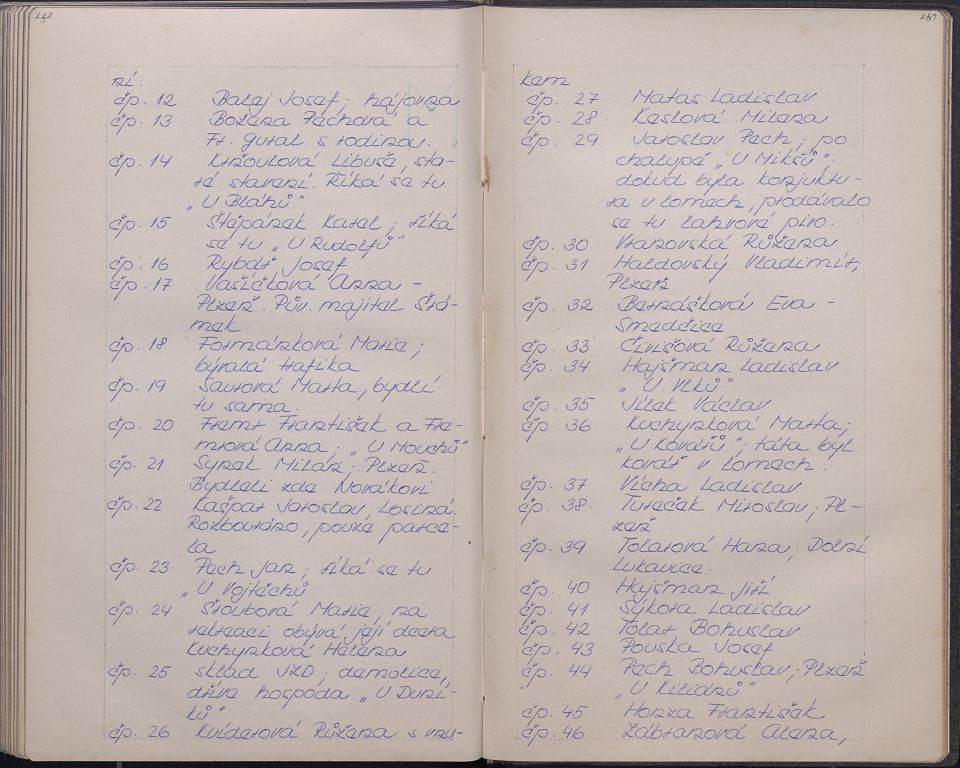 258
ní.
čp. 12 Balej Josef; hájovna
čp. 13 Božena Páchová a
Fr. Gutal s rodinou.
čp. 14 Ktroulová Libuša, sta-
ré stavení. Říká se tu
„U Bláhů"
čp. 15 Štěpánek Karel; říká
se tu „U Rudolfů"
čp. 16 Rybář Josef
čp. 17 Vašíčková Anna -
Plzeň. Pův. majitel Štá-
mek
čp. 18 Formánková Marie;
bývalá trafika
čp. 19 Saurová Marta, bydlí
tu sama.
čp. 20 Fremr František a Fre-
mrová Anna; „U Mouchů"
čp. 21 Synek Milan; Plzeň.
Bydleli zde Novákovi
čp. 22 Kašpar Jaroslav, Losiná.
Rozbouráno, pouze parce-
la
čp. 23 Pech Jan; říká se tu
„U Vojtěchů
čp. 24 Štoubová Marie; na
rekreaci obývá její dcera
Kuchynková Helena
čp. 25 sklad JZD; demolice,
dříve hospoda „U Duní-
ků"
čp. 26 Kvíderová Růžena s vnu-
259
kem
čp. 27 Matas Ladislav
čp. 28 Keslová Milena
čp. 29 Jaroslav Pech; po
chalupě „U Mikšů".
dokud byla konjuktu-
ra v lomech, prodávalo
se tu lahvové pivo.
čp. 30 Vranovská Růžena
čp. 31 Heldovský Vladimír,
Plzeň
čp. 32 Bernášková Eva -
Smedčice
čp. 33 Čivišová Růžena
čp. 34 Hajšman Ladislav
„U Vlků"
čp. 35 Jílek Václav
čp. 36 Kuchynková Marta;
„U Kovářů"; táta byl
kovář v lomech.
čp. 37 Vícha Ladislav
čp. 38 Tureček Miroslav; Pl-
zeň
čp. 39 Tolarová Hana; Dolní
Lukavice.
čp. 40 Hajšman Jiří
čp. 41 Sýkora Ladislav
čp. 42 Tolar Bohuslav
čp. 43 Pouska Josef
čp. 44 Pech Bohuslav; Plzeň
„U Kiliánů"
čp. 45 Honza František
čp. 46 Zábranová Alena,